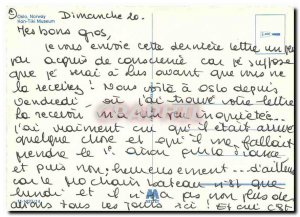 Dimanche 20.
Oslo, Norway
Kon-Tiki Museum
Mes bons gros,
je vous envoie cette dernière lettre un peu
par acquis de conscience car je suppose
que je serai à avant que vous ne
la receviez! Nous voilà à Oslo depuis
vendredi où j'ai trouvé votre lettre
la recevoir m'a inquiétée.
j'ai vraiment cru qu'il était arrivé
quelque chose et qu'il me fallait
prendre le 1er avion pour la France
et puis non, heureusement d'ailleurs
car le prochain bateau n'est que
lundi et il n'y a pas non plus
tous les jours ici! Et oui c'est